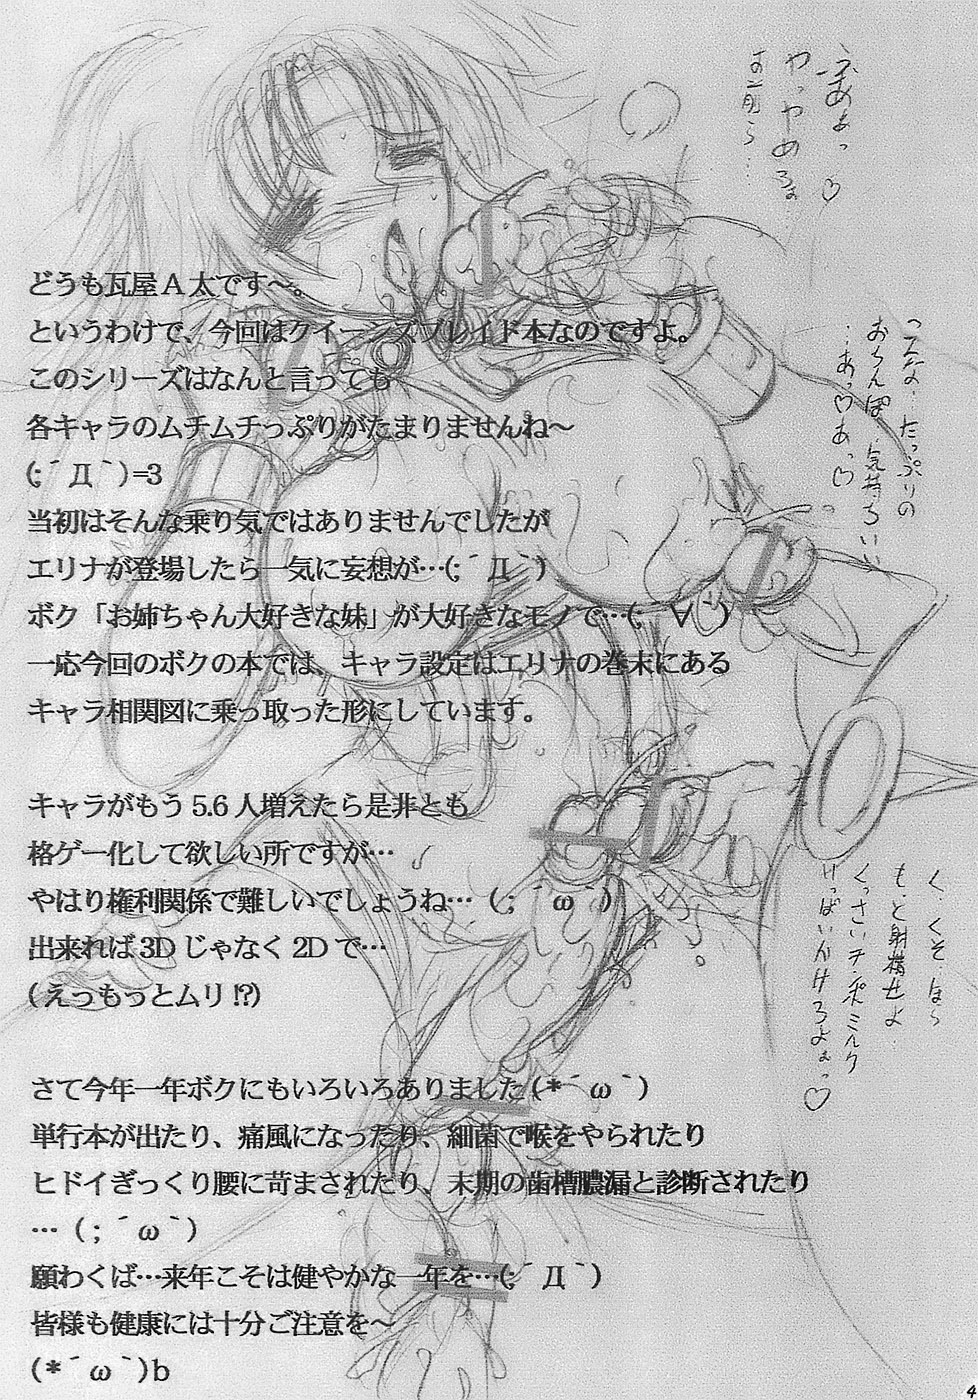 どうも瓦屋A太です～。
というわけで、今回はクイーンズブレイド本なのですよ。
このシリーズはなんと言っても
各キャラのムチムチっぷりがたまりませんね～
(;´Д`)=3
当初はそんな乗り気ではありませんでしたが
エリナが登場したら一気に妄想が…(;´Д`)
ボク「お姉ちゃん大好きな妹」が大好きなモノで…(;´∀`)
一応今回のボクの本では、キャラ設定はエリナの巻末にある
キャラ相関図に乗っ取った形にしています。
キャラがもう5.6人増えたら是非とも
格ゲー化して欲しい所ですが…
やはり権利関係で難しいでしょうね…（;´ω`）
出来れば3Dじゃなく2Dで…
(えっもっとムリ!?)
さて今年一年ボクにもいろいろありました(*´ω`)
単行本が出たり、痛風になったり、細菌で喉をやられたり
ヒドイぎっくり腰に苛まされたり、末期の歯槽膿漏と診断されたり
…（;´ω`）
願わくば…来年こそは健やかな一年を…(;´Д`)
皆様も健康には十分ご注意を～
(*´ω`)b
こんな、たっぷりの
おちんぽ、気持ちいい
…あっ♡あっ♡
く、くそ、ほら
もっと射精せよ
くっさいチンポミルク
いっぱいかけろよぉっ♡
4